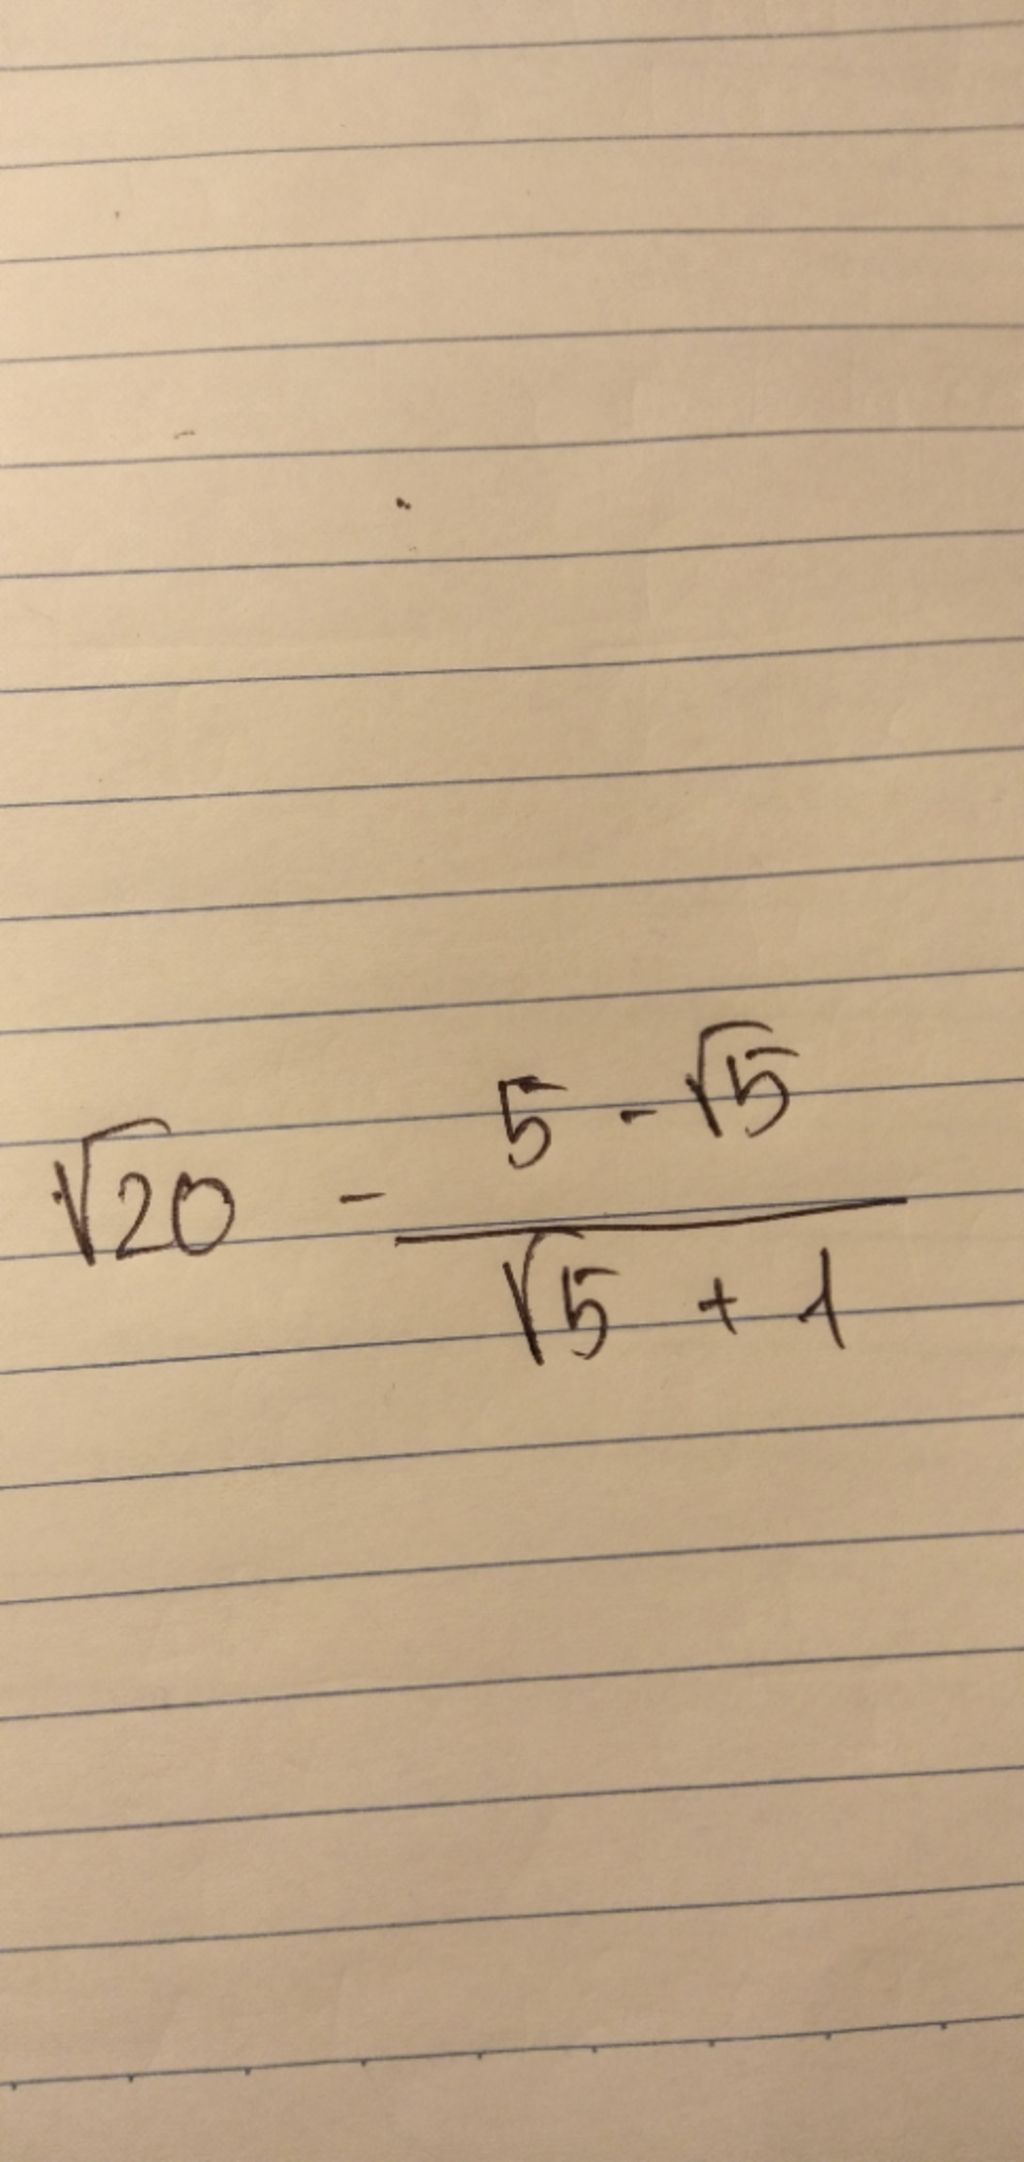 √20 - (5 - √5) / (√5 + 1)